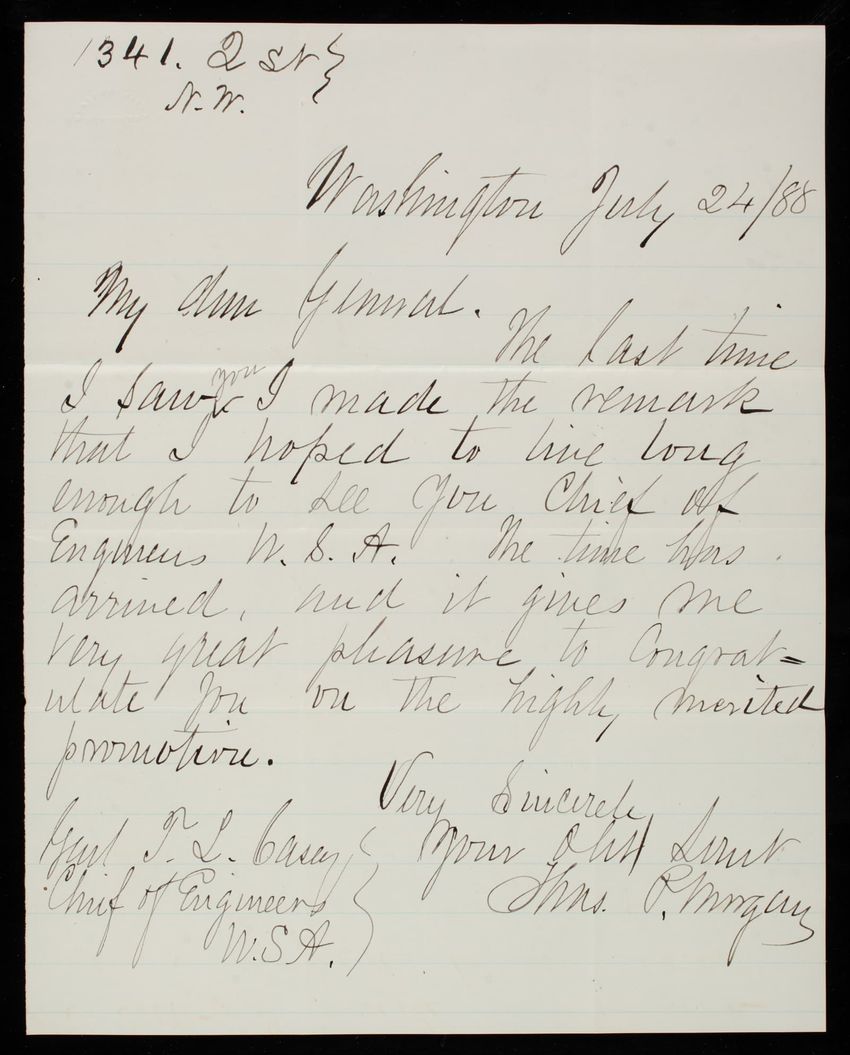 1341. Q St
N.W.
Washington July 24/88
My dear General.
The last time
you
I saw I made the remark
that I hoped to live long
enough to see you Chief of
Engineers U.S.A. The time has
arrived, and it gives me
very great pleasure to Congrat=
ulate you on the highly merited
promotion.
Very Sincerely
Your Obt Servt
Thos. P. Morgan
Genl T. L. Casey
Chief of Engineers
U.S.A.